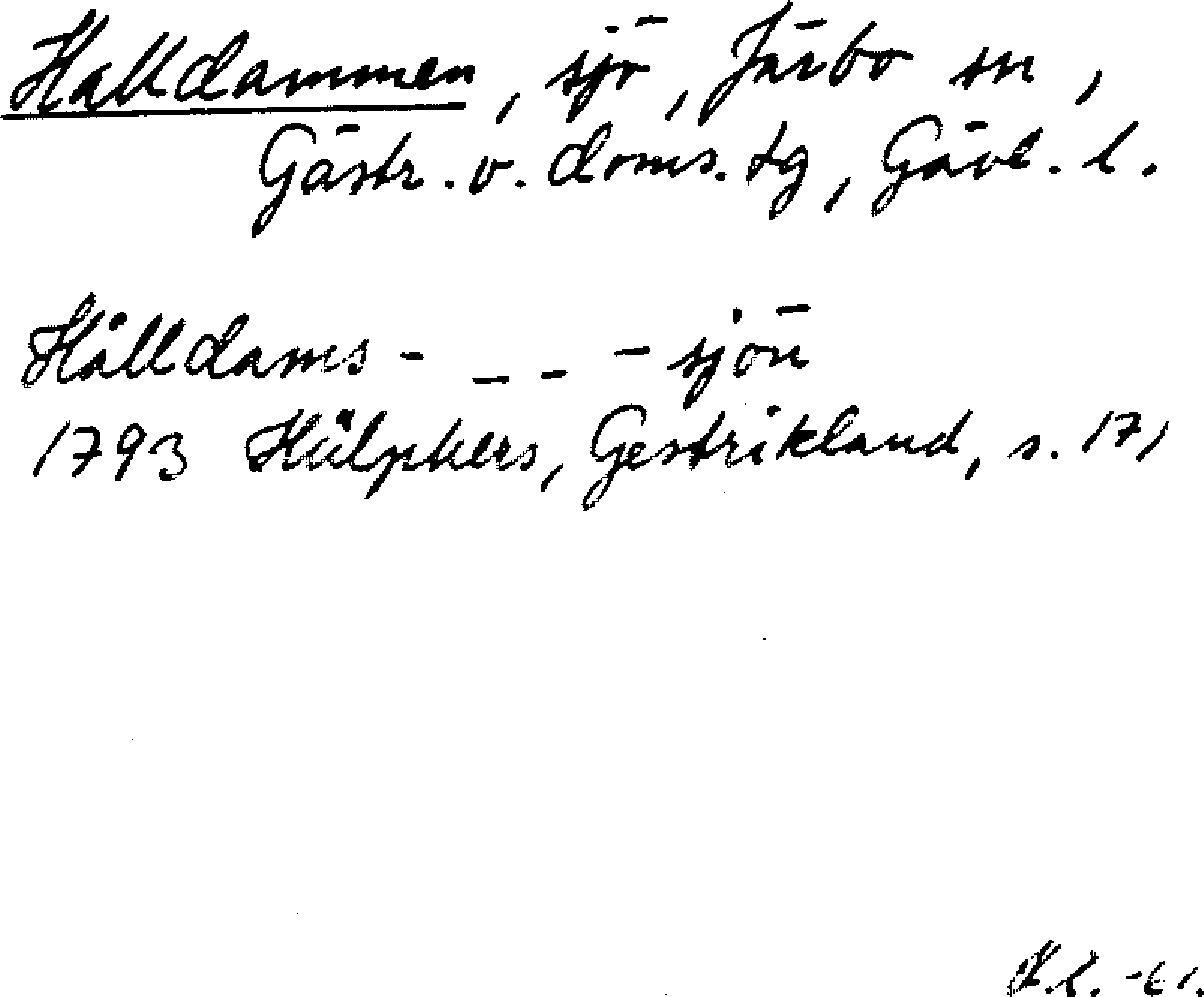 Halldammen, sjö, Järbo sn,
Gästr. v. doms. tg, Gävl. l.
Hålldams- _ _ - sjön
1793 Hülphers, Gestrikland, s. 171